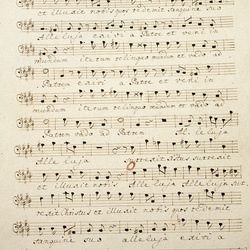 et illuxit nobis quos redemit sanguine suo
Alleluja exivi a Patre et veni in
mundum iterum relinquo mundum et vado ad
Patrem exivi a Patre et veni in
mundum iterum relinquo mundum et vado ad
Patrem vado ad Patrem Alleluja
Alleluja surrexit istus surrexit
et illuxit nobis Alleluja Alleluja sur
rexit Christus et illuxit nobis quos redemit
sanguine suo alleluja exivi a